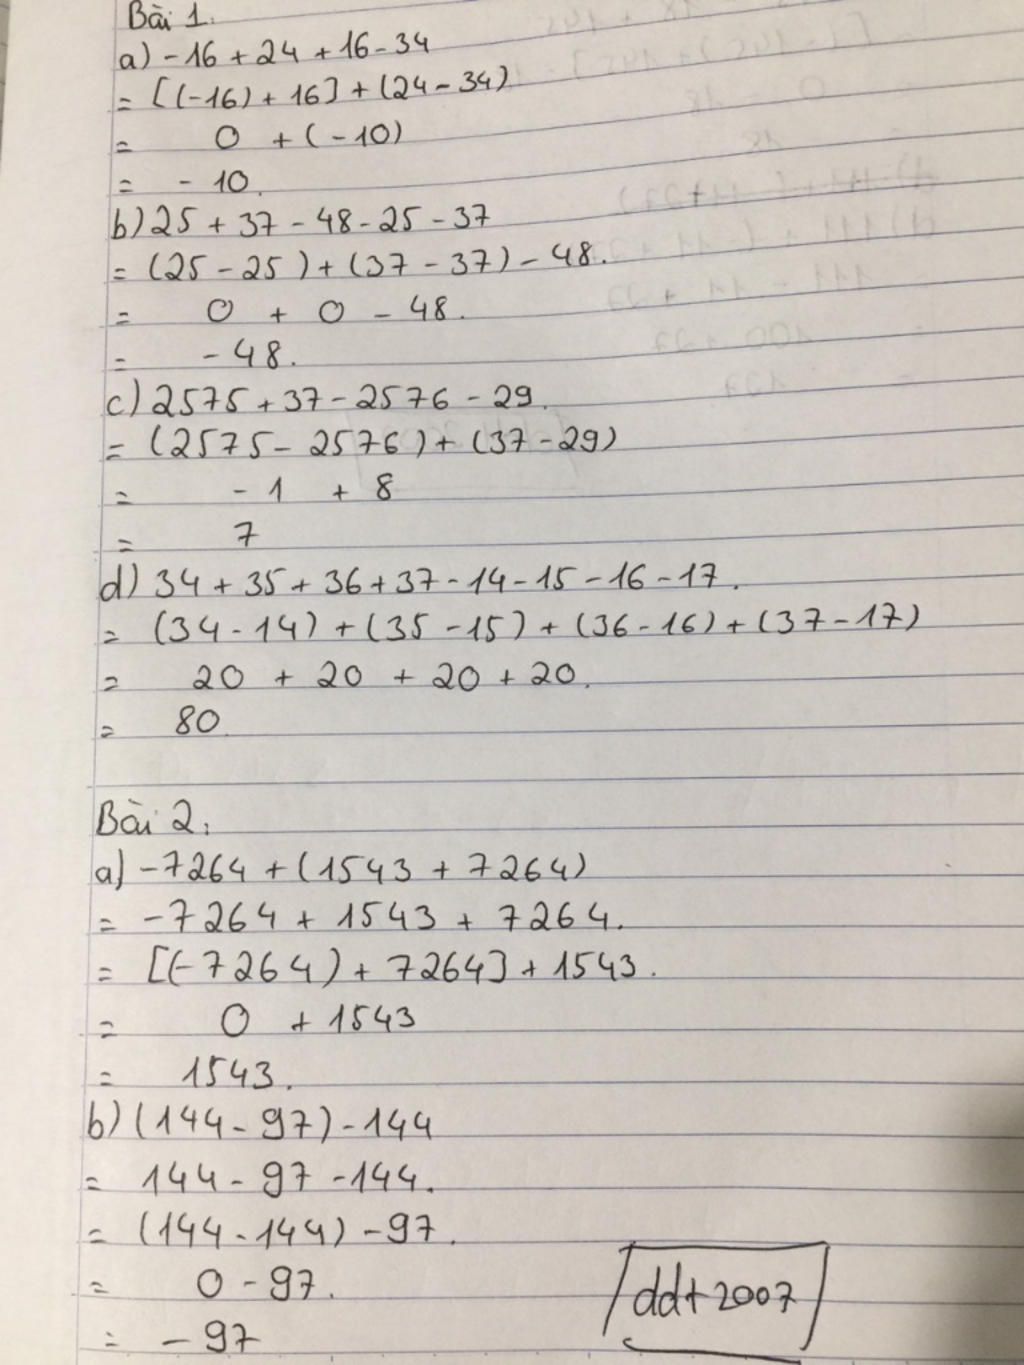 Bài 1.
a) -16 + 24 + 16 - 34
= [(-16) + 16] + (24 - 34)
= 0 + (-10)
= - 10.
b) 25 + 37 - 48 - 25 - 37
= (25 - 25) + (37 - 37) - 48.
= 0 + 0 - 48.
= - 48.
c) 2575 + 37 - 2576 - 29.
= (2575 - 2576) + (37 - 29)
= - 1 + 8
= 7
d) 34 + 35 + 36 + 37 - 14 - 15 - 16 - 17.
= (34 - 14) + (35 - 15) + (36 - 16) + (37 - 17)
= 20 + 20 + 20 + 20.
= 80
Bài 2:
a) -7264 + (1543 + 7264)
= -7264 + 1543 + 7264.
= [(-7264) + 7264] + 1543.
= 0 + 1543
= 1543.
b) (144 - 97) - 144
= 144 - 97 - 144.
= (144 - 144) - 97.
= 0 - 97.
= - 97
ddt2007